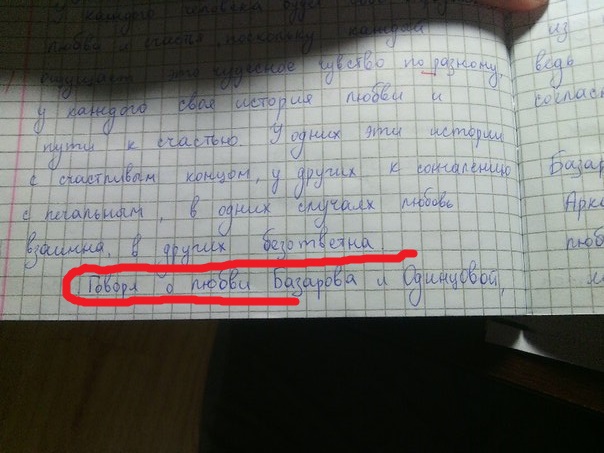 У каждого человека будет
любви и счастья, поскольку каждый из
ощущает это чудесное чувство по разному, ведь
у каждого своя история любви и согласи
пути к счастью. У одних эти истории
с счастливым концом, у других к сожалению Базар
с печальным, в одних случаях любовь Арка
взаимна, в других безответна. люб
Говоря о любви Базарова и Одинцовой,